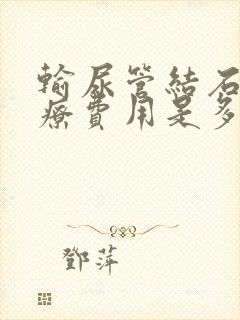 輸尿管結石
療費用是多
鄧萍